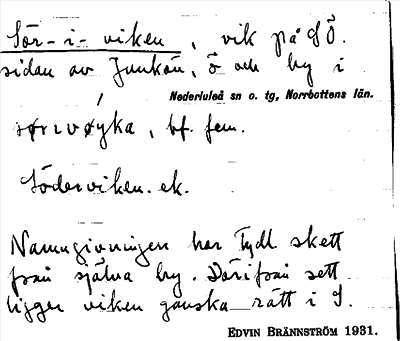 Sör-i-viken, vik på SÖ.
sidan av Junkön, ö och by i
Nederluleå sn o. tg, Norrbottens län.
bf. fem.
Söderviken. ek.
Namngivningen har tydl. skett
från själva by. Därifrån sett
ligger viken ganska rätt i S.
EDVIN BRÄNNSTRÖM 1931.